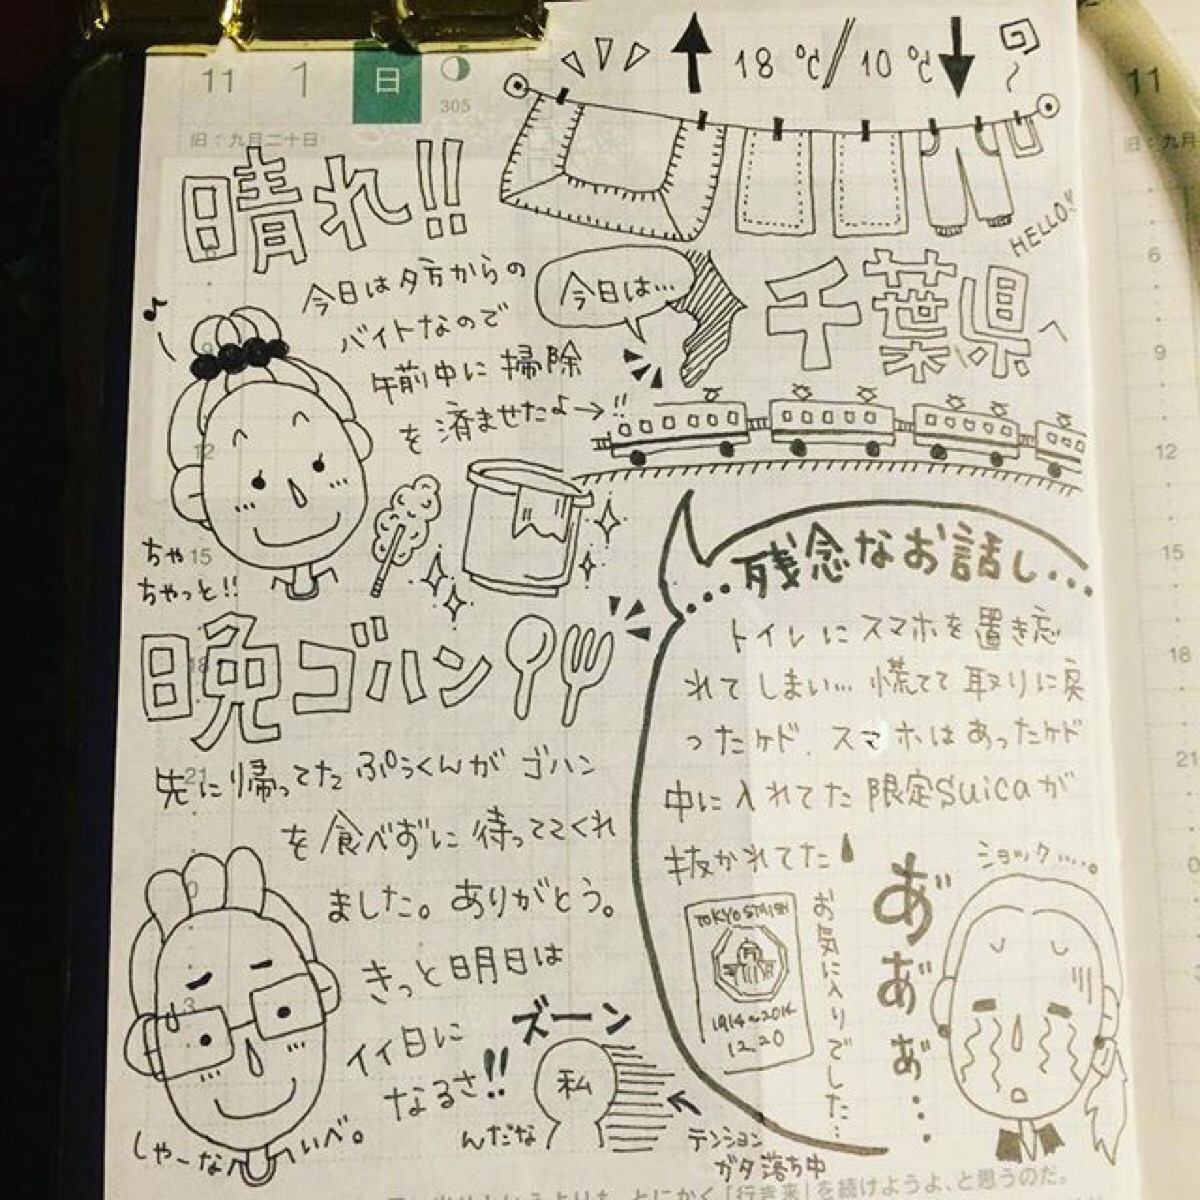 11 1 日
305
旧：九月二十日
18℃/10℃
HELLO!!
晴れ!!
今日は夕方からの
バイトなので
午前中に掃除
を済ませたよ→!!
ちゃ
ちゃっと!!
今日は…
千葉県へ
晩ゴハン
先に帰ってたぷぅくんがゴハン
を食べずに待っててくれ
ました。ありがとう。
きっと明日は
イイ日に
なるさ!!
しゃーない
べ。
ズーン
私
んだな
テンション
ガタ落ち中
…残念なお話し…
トイレにスマホを置き忘
れてしまい…慌てて取りに戻
ったケド、スマホはあったケド
中に入れてた限定Suicaが
抜かれてた
TOKYO STATION
1914〜2014
12.20
お気に入りでした…
あ゛あ゛あ゛…
ショック…。
6
9
12
15
18
21
0
3
11
旧：九月
6
9
12
15
18
21
とにかく「行き来」を続けようよ、と思うのだ。